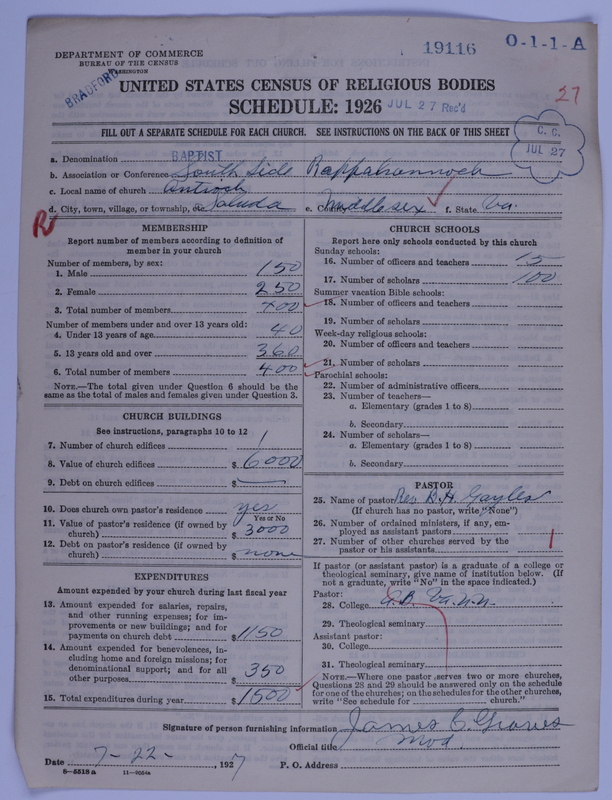 DEPARTMENT OF COMMERCE
BUREAU OF THE CENSUS
WASHINGTON
BRADFORD
19116
O-1-1-A
UNITED STATES CENSUS OF RELIGIOUS BODIES
SCHEDULE: 1926
JUL 27 Rec'd
27
FILL OUT A SEPARATE SCHEDULE FOR EACH CHURCH. SEE INSTRUCTIONS ON THE BACK OF THIS SHEET
C. C.
JUL 27
a. Denomination BAPTIST
b. Association or Conference South Side Rappahannock
c. Local name of church Antioch
d. City, town, village, or township, etc. Saluda e. County Middlesex f. State Va.
R
MEMBERSHIP
Report number of members according to definition of member in your church
Number of members, by sex:
1. Male 150
2. Female 250
3. Total number of members 400
Number of members under and over 13 years old:
4. Under 13 years of age 40
5. 13 years old and over 360
6. Total number of members 400
NOTE.—The total given under Question 6 should be the same as the total of males and females given under Question 3.
CHURCH BUILDINGS
See instructions, paragraphs 10 to 12
7. Number of church edifices 1
8. Value of church edifices $ 6000
9. Debt on church edifices $
10. Does church own pastor's residence yes
Yes or No
11. Value of pastor's residence (if owned by church) $ 3000
12. Debt on pastor's residence (if owned by church) $ none
EXPENDITURES
Amount expended by your church during last fiscal year
13. Amount expended for salaries, repairs, and other running expenses; for improvements or new buildings; and for payments on church debt $ 1150
14. Amount expended for benevolences, including home and foreign missions; for denominational support; and for all other purposes $ 350
15. Total expenditures during year $ 1500
CHURCH SCHOOLS
Report here only schools conducted by this church
Sunday schools:
16. Number of officers and teachers 15
17. Number of scholars 100
Summer vacation Bible schools:
18. Number of officers and teachers
19. Number of scholars
Week-day religious schools:
20. Number of officers and teachers
21. Number of scholars
Parochial schools:
22. Number of administrative officers
23. Number of teachers—
a. Elementary (grades 1 to 8)
b. Secondary
24. Number of scholars—
a. Elementary (grades 1 to 8)
b. Secondary
PASTOR
25. Name of pastor Rev. B. H. Gayles
(If church has no pastor, write "None")
26. Number of ordained ministers, if any, employed as assistant pastors
27. Number of other churches served by the pastor or his assistants 1
If pastor (or assistant pastor) is a graduate of a college or theological seminary, give name of institution below. (If not a graduate, write "No" in the space indicated.)
Pastor:
28. College Va. Un.
29. Theological seminary
Assistant pastor:
30. College
31. Theological seminary
NOTE.—Where one pastor serves two or more churches, Questions 28 and 29 should be answered only on the schedule for one of the churches; on the schedules for the other churches, write "See schedule for church."
Signature of person furnishing information James C. Graves
Official title Mod
Date 7-22- , 1927
P. O. Address
8-5518a 11-9024a